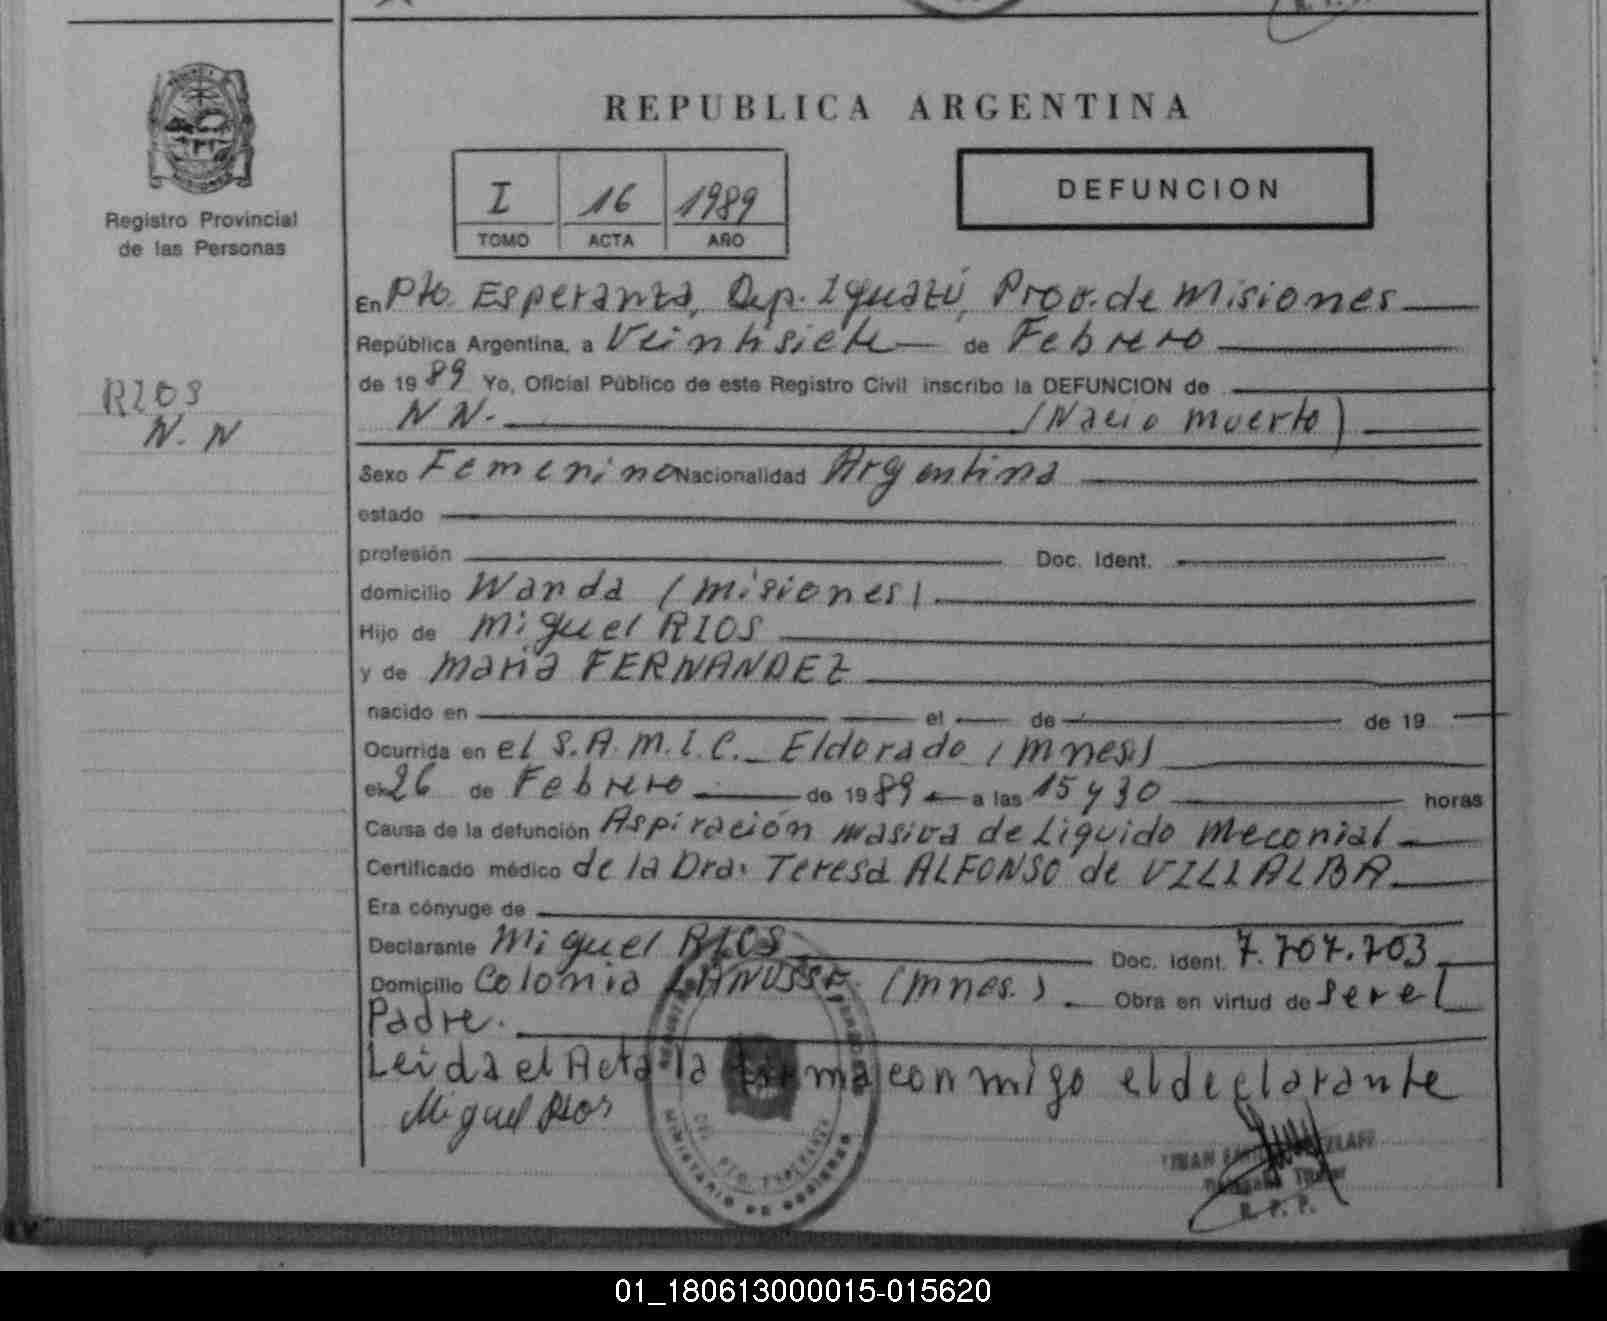 REPUBLICA ARGENTINA
Registro Provincial
de las Personas
I 16 1989
TOMO ACTA AÑO
DEFUNCION
RIOS
N. N
En Pto. Esperanza, Dep. Iguazú, Prov. de Misiones
República Argentina, a Veintisiete de Febrero
de 1989 Yo, Oficial Público de este Registro Civil inscribo la DEFUNCION de
NN. (Nacio muerto)
Sexo Femenino Nacionalidad Argentina
estado
profesión Doc. Ident.
domicilio Wanda (Misiones)
Hijo de Miguel RIOS
y de Maria FERNANDEZ
nacido en el de de 19
Ocurrida en el S.A.M.I.C. Eldorado (Mnes.)
el 26 de Febrero de 1989 a las 15 y 30 horas
Causa de la defunción Aspiración masiva de Liquido Meconial
Certificado médico de la Dra. Teresa ALFONSO de VILLALBA
Era cónyuge de
Declarante Miguel RIOS Doc. Ident. 7.707.703
Domicilio Colonia LANUSSE. (Mnes.) Obra en virtud de ser el
Padre.
Leida el Acta la firma conmigo el declarante
Miguel Rios
MINISTERIO DE GOBIERNO
PTO. ESPERANZA
R. P. P.
01_180613000015-015620